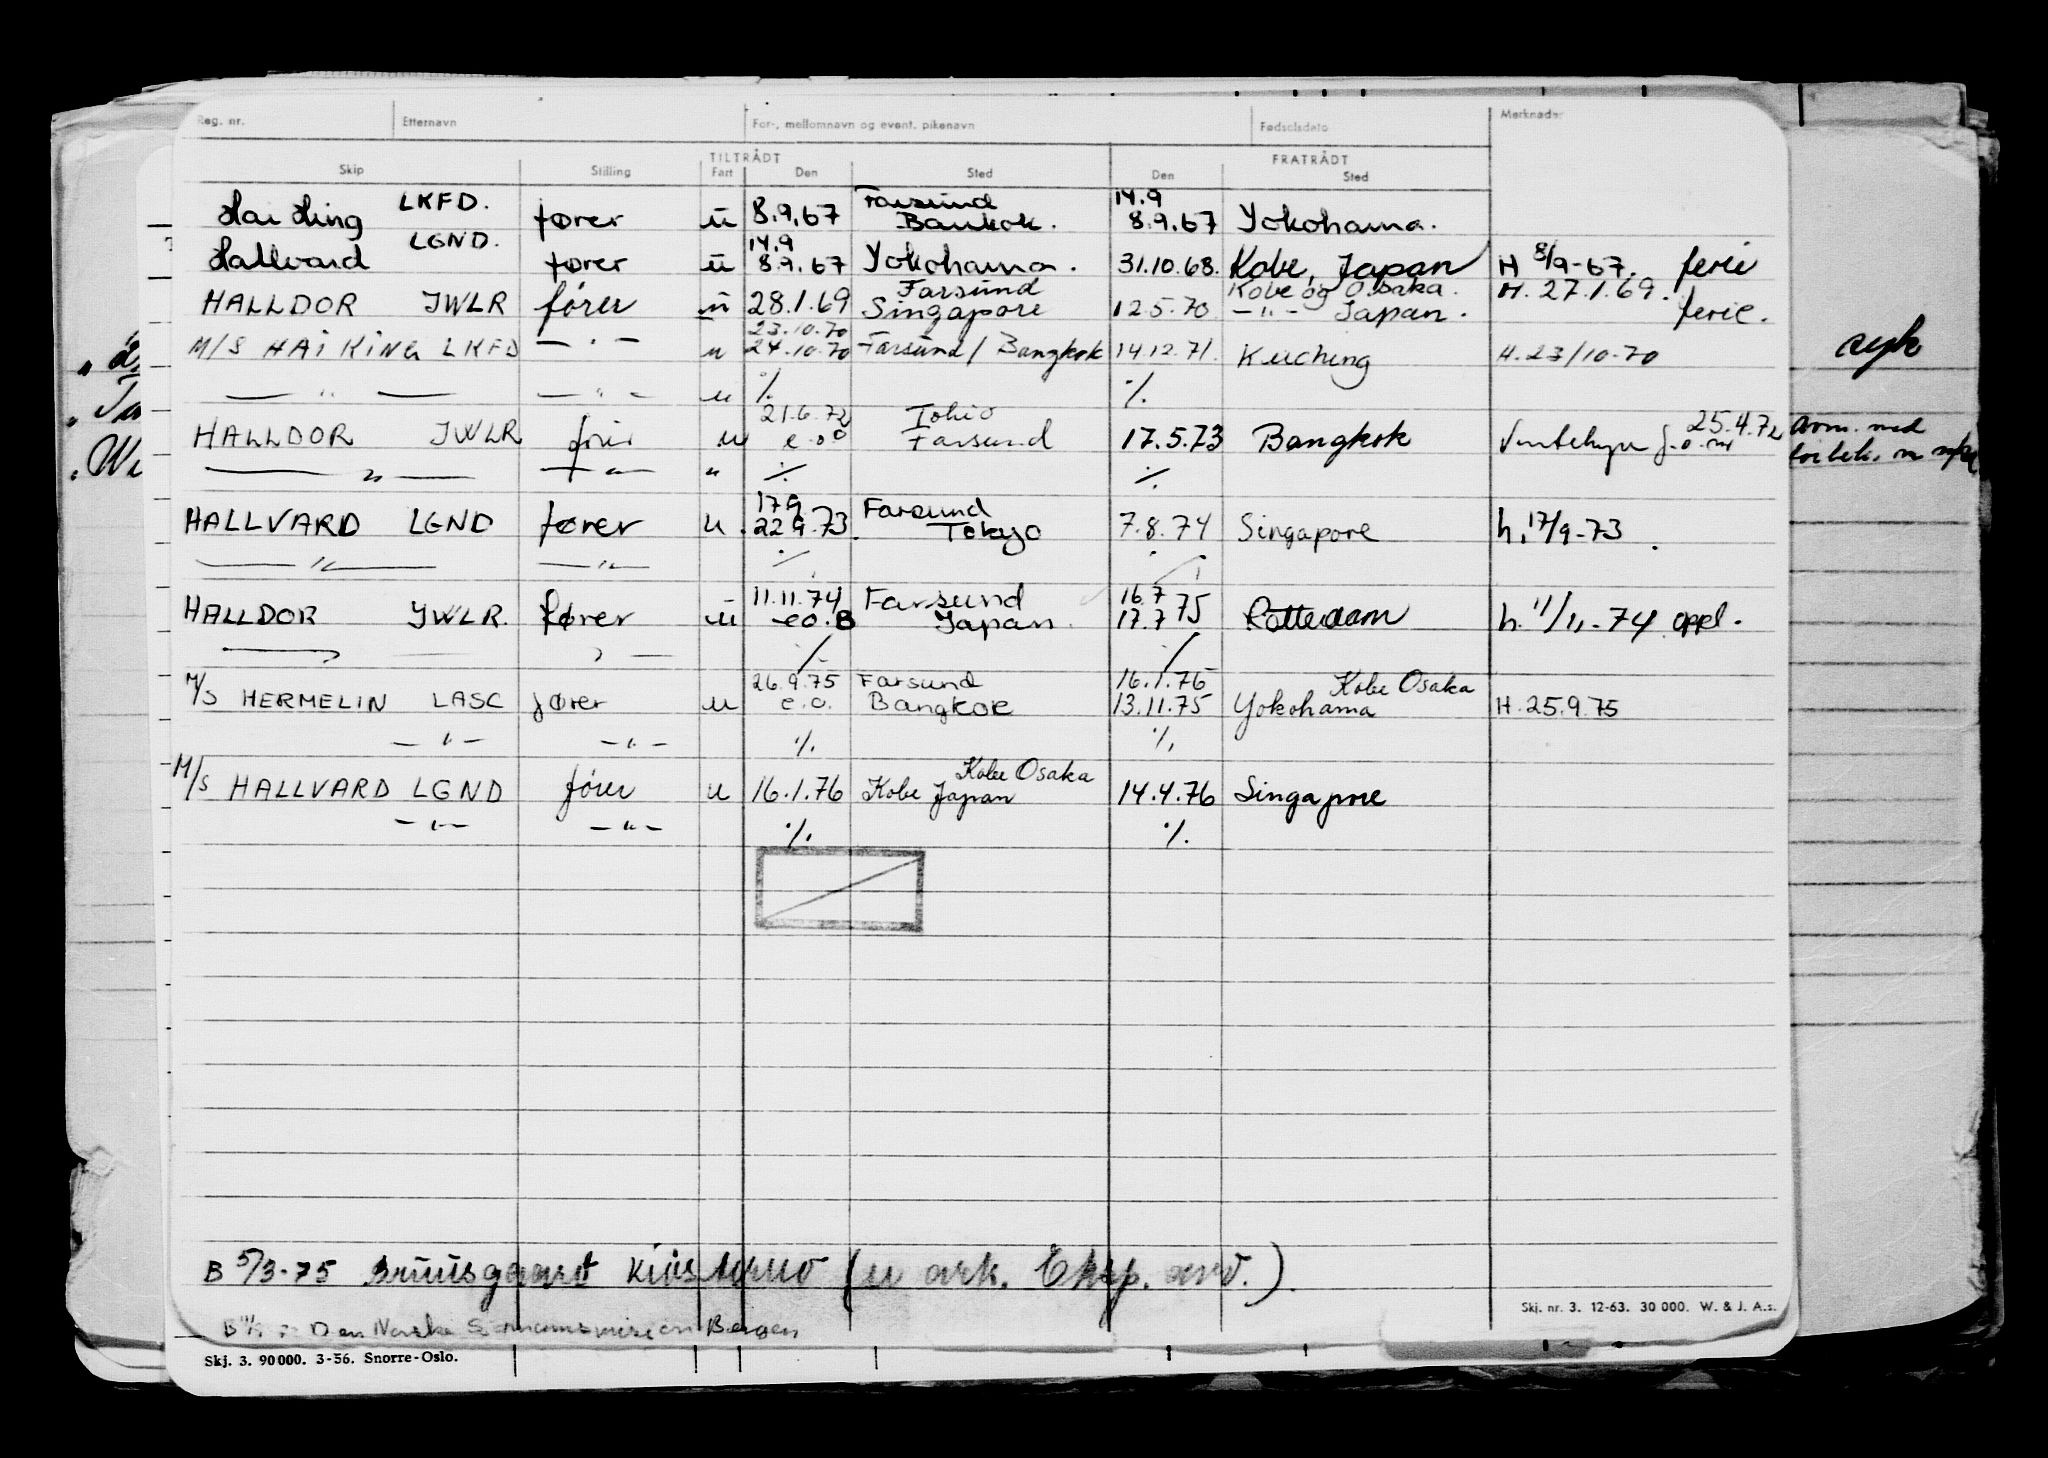 Reg. nr. Etternavn For-, mellomnavn og event. pikenavn Fødselsdato Merknader
TILTRÅDT FRATRÅDT
Skip Stilling Fart Den Sted Den Sted
LKFD. Farsund 14.9
Hai Hing fører u 8.9.67 Bankok. 8.9.67 Yokohama.
LGND. 14.9
Hallvard fører u 8.9.67 Yokohama. 31.10.68. Kobe, Japan H 8/9-67. ferie
Farsund Kobe og Osaka. H. 27.1.69.
HALLDOR JWLR fører u 28.1.69 Singapore 12.5.70 -"- Japan. ferie.
23.10.70
M/S HAI KING LKFD -"- u 24.10.70 Farsund / Bangkok 14.12.71. Kuching H. 23/10-70
-"- -"- u ./. ./.
21.6.72 Tokio 25.4.72
HALLDOR JWLR fører u e.o Farsund 17.5.73 Bangkok
-"- -"- " ./. ./.
17.9 Farsund
HALLVARD LGND fører u 22.9.73. Tokyo 7.8.74 Singapore h. 17/9-73.
-"- -"- ./. ./.
11.11.74 Farsund 16.7
HALLDOR JWLR. fører u eo. B Japan. 17.7 75 Rotterdam h. 11/11-74 oppl.
-"- -"- ./. ./.
26.9.75 Farsund 16.1.76 Kobe Osaka
M/S HERMELIN LASC fører u e.o. Bangkok 13.11.75 Yokohama H. 25.9.75
-"- -"- ./. ./.
Kobe Osaka
M/S HALLVARD LGND fører u 16.1.76 Kobe Japan 14.4.76 Singapore
-"- -"- ./. ./.
B 5/3-75 Bruusgaard Kiøsterud (u ark. Eksp. avd.).
Skj. nr. 3. 12-63. 30 000. W. & J. A.s.
Den Norske Sjømannsmisjon Bergen
Skj. 3. 90 000. 3-56. Snorre-Oslo.